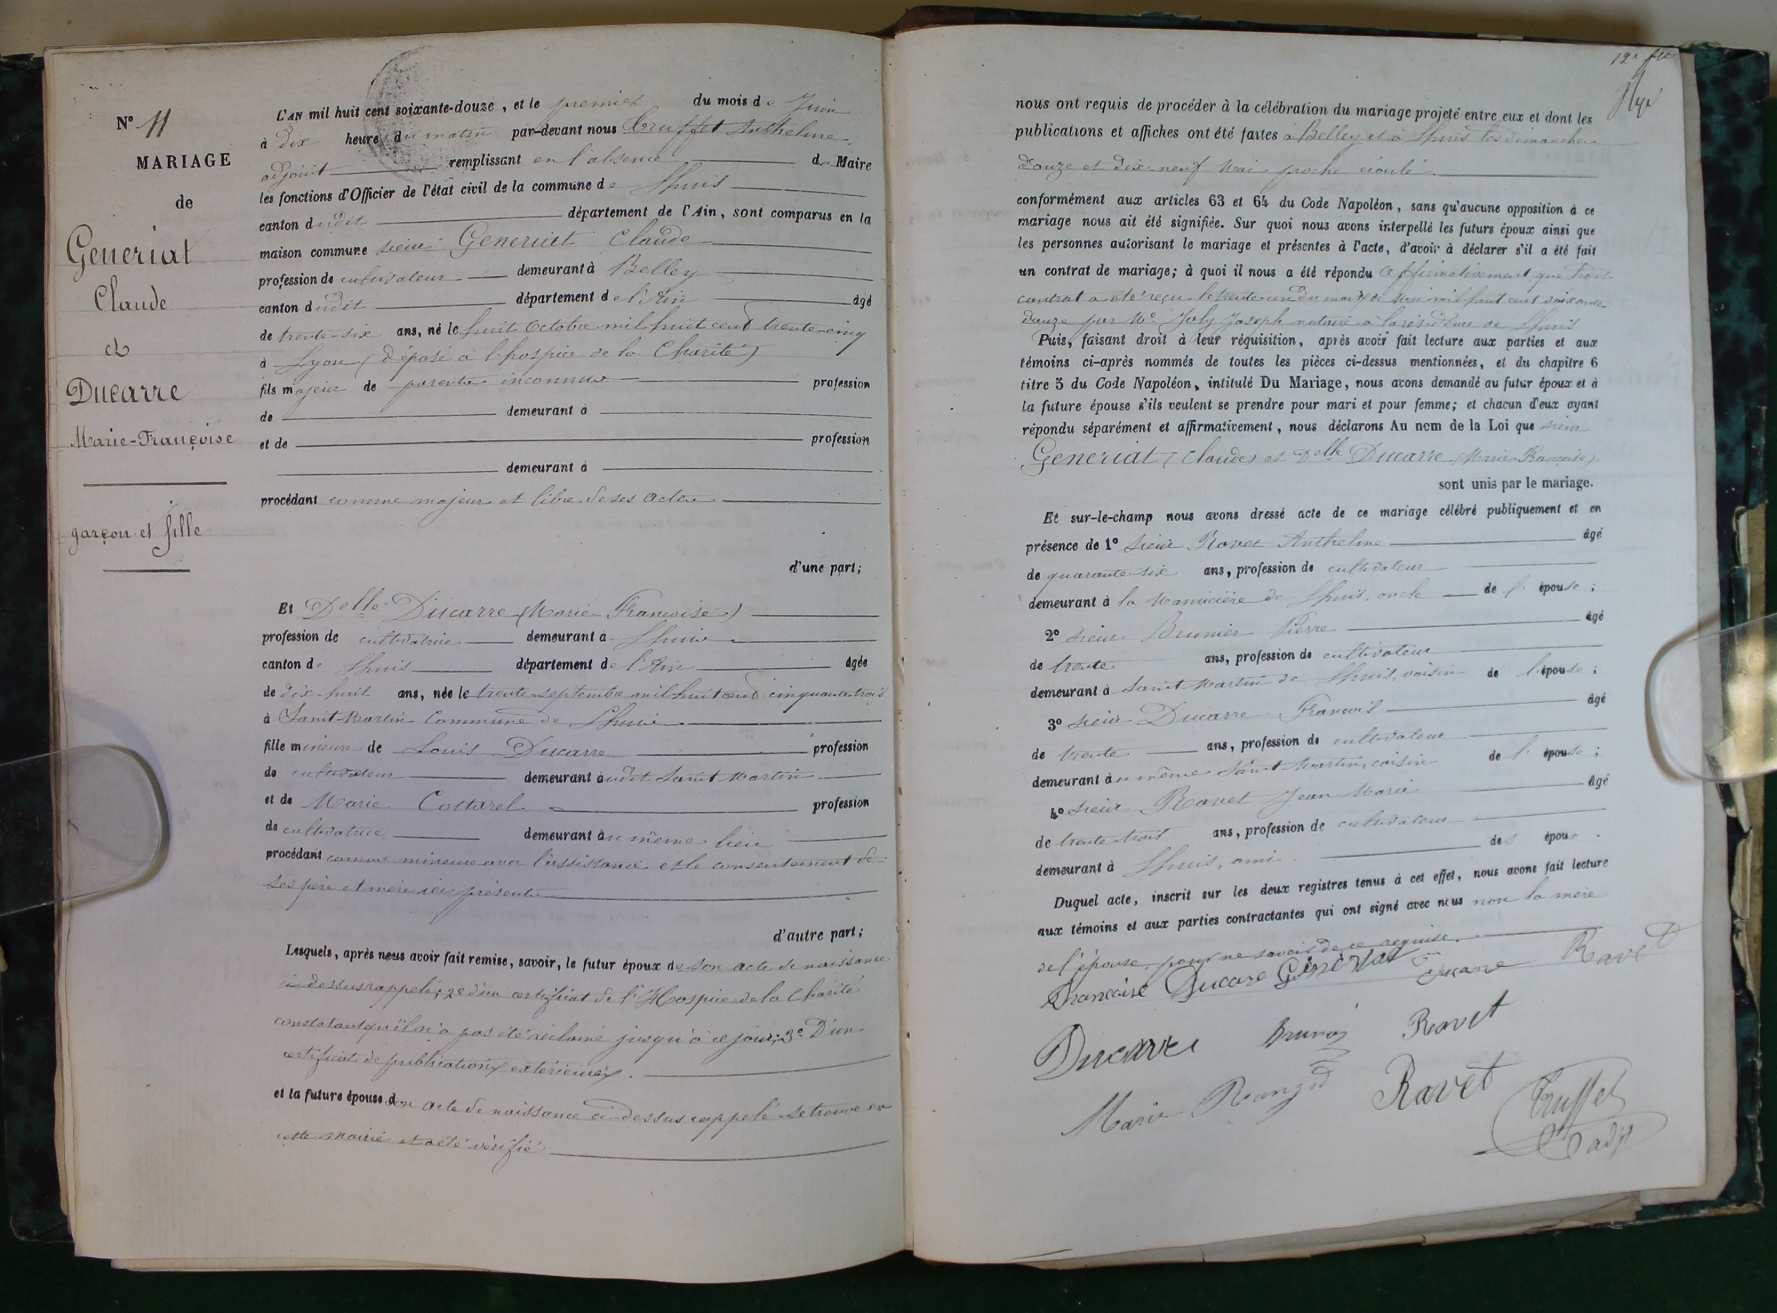 N° 11
MARIAGE
de
Generiat
Claude
et
Ducarre
Marie-Françoise
garçon et fille
L'AN mil huit cent soixante-douze, et le premier du mois de Juin
à dix heure du matin par-devant nous Truffet Anthelme
adjoint remplissant en l'absence du Maire
les fonctions d'Officier de l'état civil de la commune de Lhuis
canton dudit département de l'Ain, sont comparus en la
maison commune sieur Generiat Claude
profession de cultivateur demeurant à Belley
canton dudit département de l'Ain âgé
de trente-six ans, né le huit Octobre mil huit cent trente-cinq
à Lyon (déposé à l'hospice de la Charité)
fils majeur de parents inconnus profession
de demeurant à
et de profession
demeurant à
procédant comme majeur et libre de ses actes
d'une part;
Et Delle Ducarre (Marie Françoise)
profession de cultivatrice demeurant à Lhuis
canton de Lhuis département de l'Ain âgée
de dix-huit ans, née le trente septembre mil huit cent cinquante trois
à Saint-Martin Commune de Lhuis
fille mineure de Louis Ducarre profession
de cultivateur demeurant audit Saint Martin
et de Marie Cottarel profession
de cultivatrice demeurant au même lieu
procédant comme mineure avec l'assistance et le consentement de
ses père et mère ici présents
d'autre part;
Lesquels, après nous avoir fait remise, savoir, le futur époux de son acte de naissance
ci-dessus rappelé; 2° d'un certificat de l'Hospice de la Charité
constatant qu'il n'a pas été réclamé jusqu'à ce jour; 3° D'un
certificat de publications extérieures.
et la future épouse d son acte de naissance ci-dessus rappelé se trouve en
cette mairie et a été vérifié
12e
nous ont requis de procéder à la célébration du mariage projeté entre eux et dont les
publications et affiches ont été faites à Belley et à Lhuis les dimanches
douze et dix-neuf Mai proche écoulé
conformément aux articles 63 et 64 du Code Napoléon, sans qu'aucune opposition à ce
mariage nous ait été signifiée. Sur quoi nous avons interpellé les futurs époux ainsi que
les personnes autorisant le mariage et présentes à l'acte, d'avoir à déclarer s'il a été fait
un contrat de mariage; à quoi il nous a été répondu affirmativement que
contrat a été reçu le trente un du mois de mil huit cent soixante
douze par Me Joly Joseph notaire à la résidence de Lhuis
Puis, faisant droit à leur réquisition, après avoir fait lecture aux parties et aux
témoins ci-après nommés de toutes les pièces ci-dessus mentionnées, et du chapitre 6
titre 5 du Code Napoléon, intitulé Du Mariage, nous avons demandé au futur époux et à
la future épouse s'ils veulent se prendre pour mari et pour femme; et chacun d'eux ayant
répondu séparément et affirmativement, nous déclarons Au nom de la Loi que sieur
Generiat (Claude) et Delle Ducarre (Marie Françoise)
sont unis par le mariage.
Et sur-le-champ nous avons dressé acte de ce mariage célébré publiquement et en
présence de 1° sieur Ravet Anthelme âgé
de quarante-six ans, profession de cultivateur
demeurant à la de Lhuis, oncle de l'épouse;
2° sieur Brunier Pierre âgé
de trente ans, profession de cultivateur
demeurant à Saint Martin de Lhuis, voisin de l'épouse;
3° sieur Ducarre François âgé
de trente ans, profession de cultivateur
demeurant au même Saint Martin, cousin de l'épouse;
4° sieur Ravet Jean Marie âgé
de trente-trois ans, profession de cultivateur
demeurant à Lhuis, ami des époux.
Duquel acte, inscrit sur les deux registres tenus à cet effet, nous avons fait lecture
aux témoins et aux parties contractantes qui ont signé avec nous non la mère
de l'épouse, pour ne savoir de ce requise.
Françoise Ducare Génériat Ducarre Ravet
Ducarre Ravet
Marie Ravet Truffet
adjt